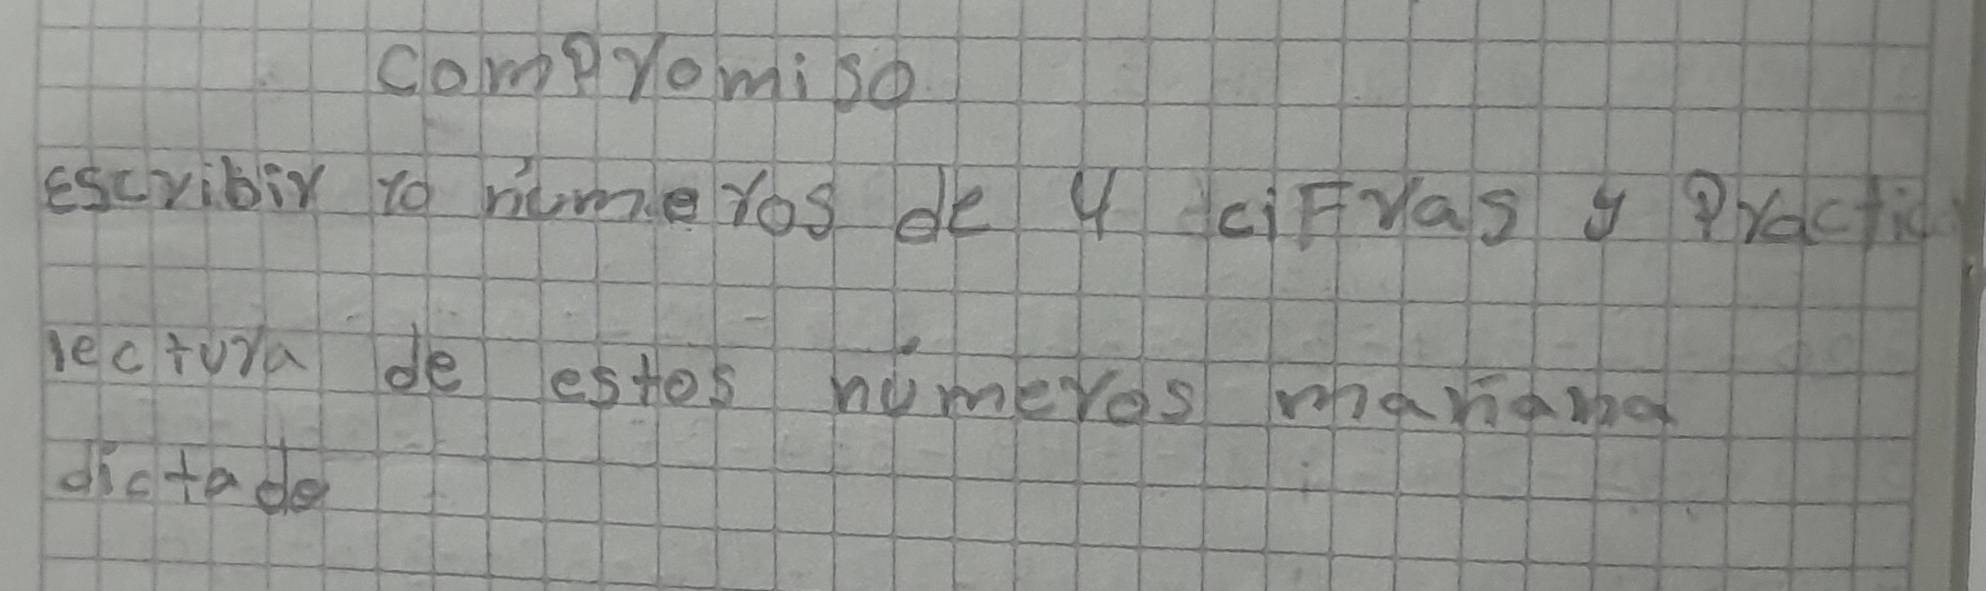 compromiso
escribir 10 números de 4 cifras y practic
lectura de estos números mañana
dictado